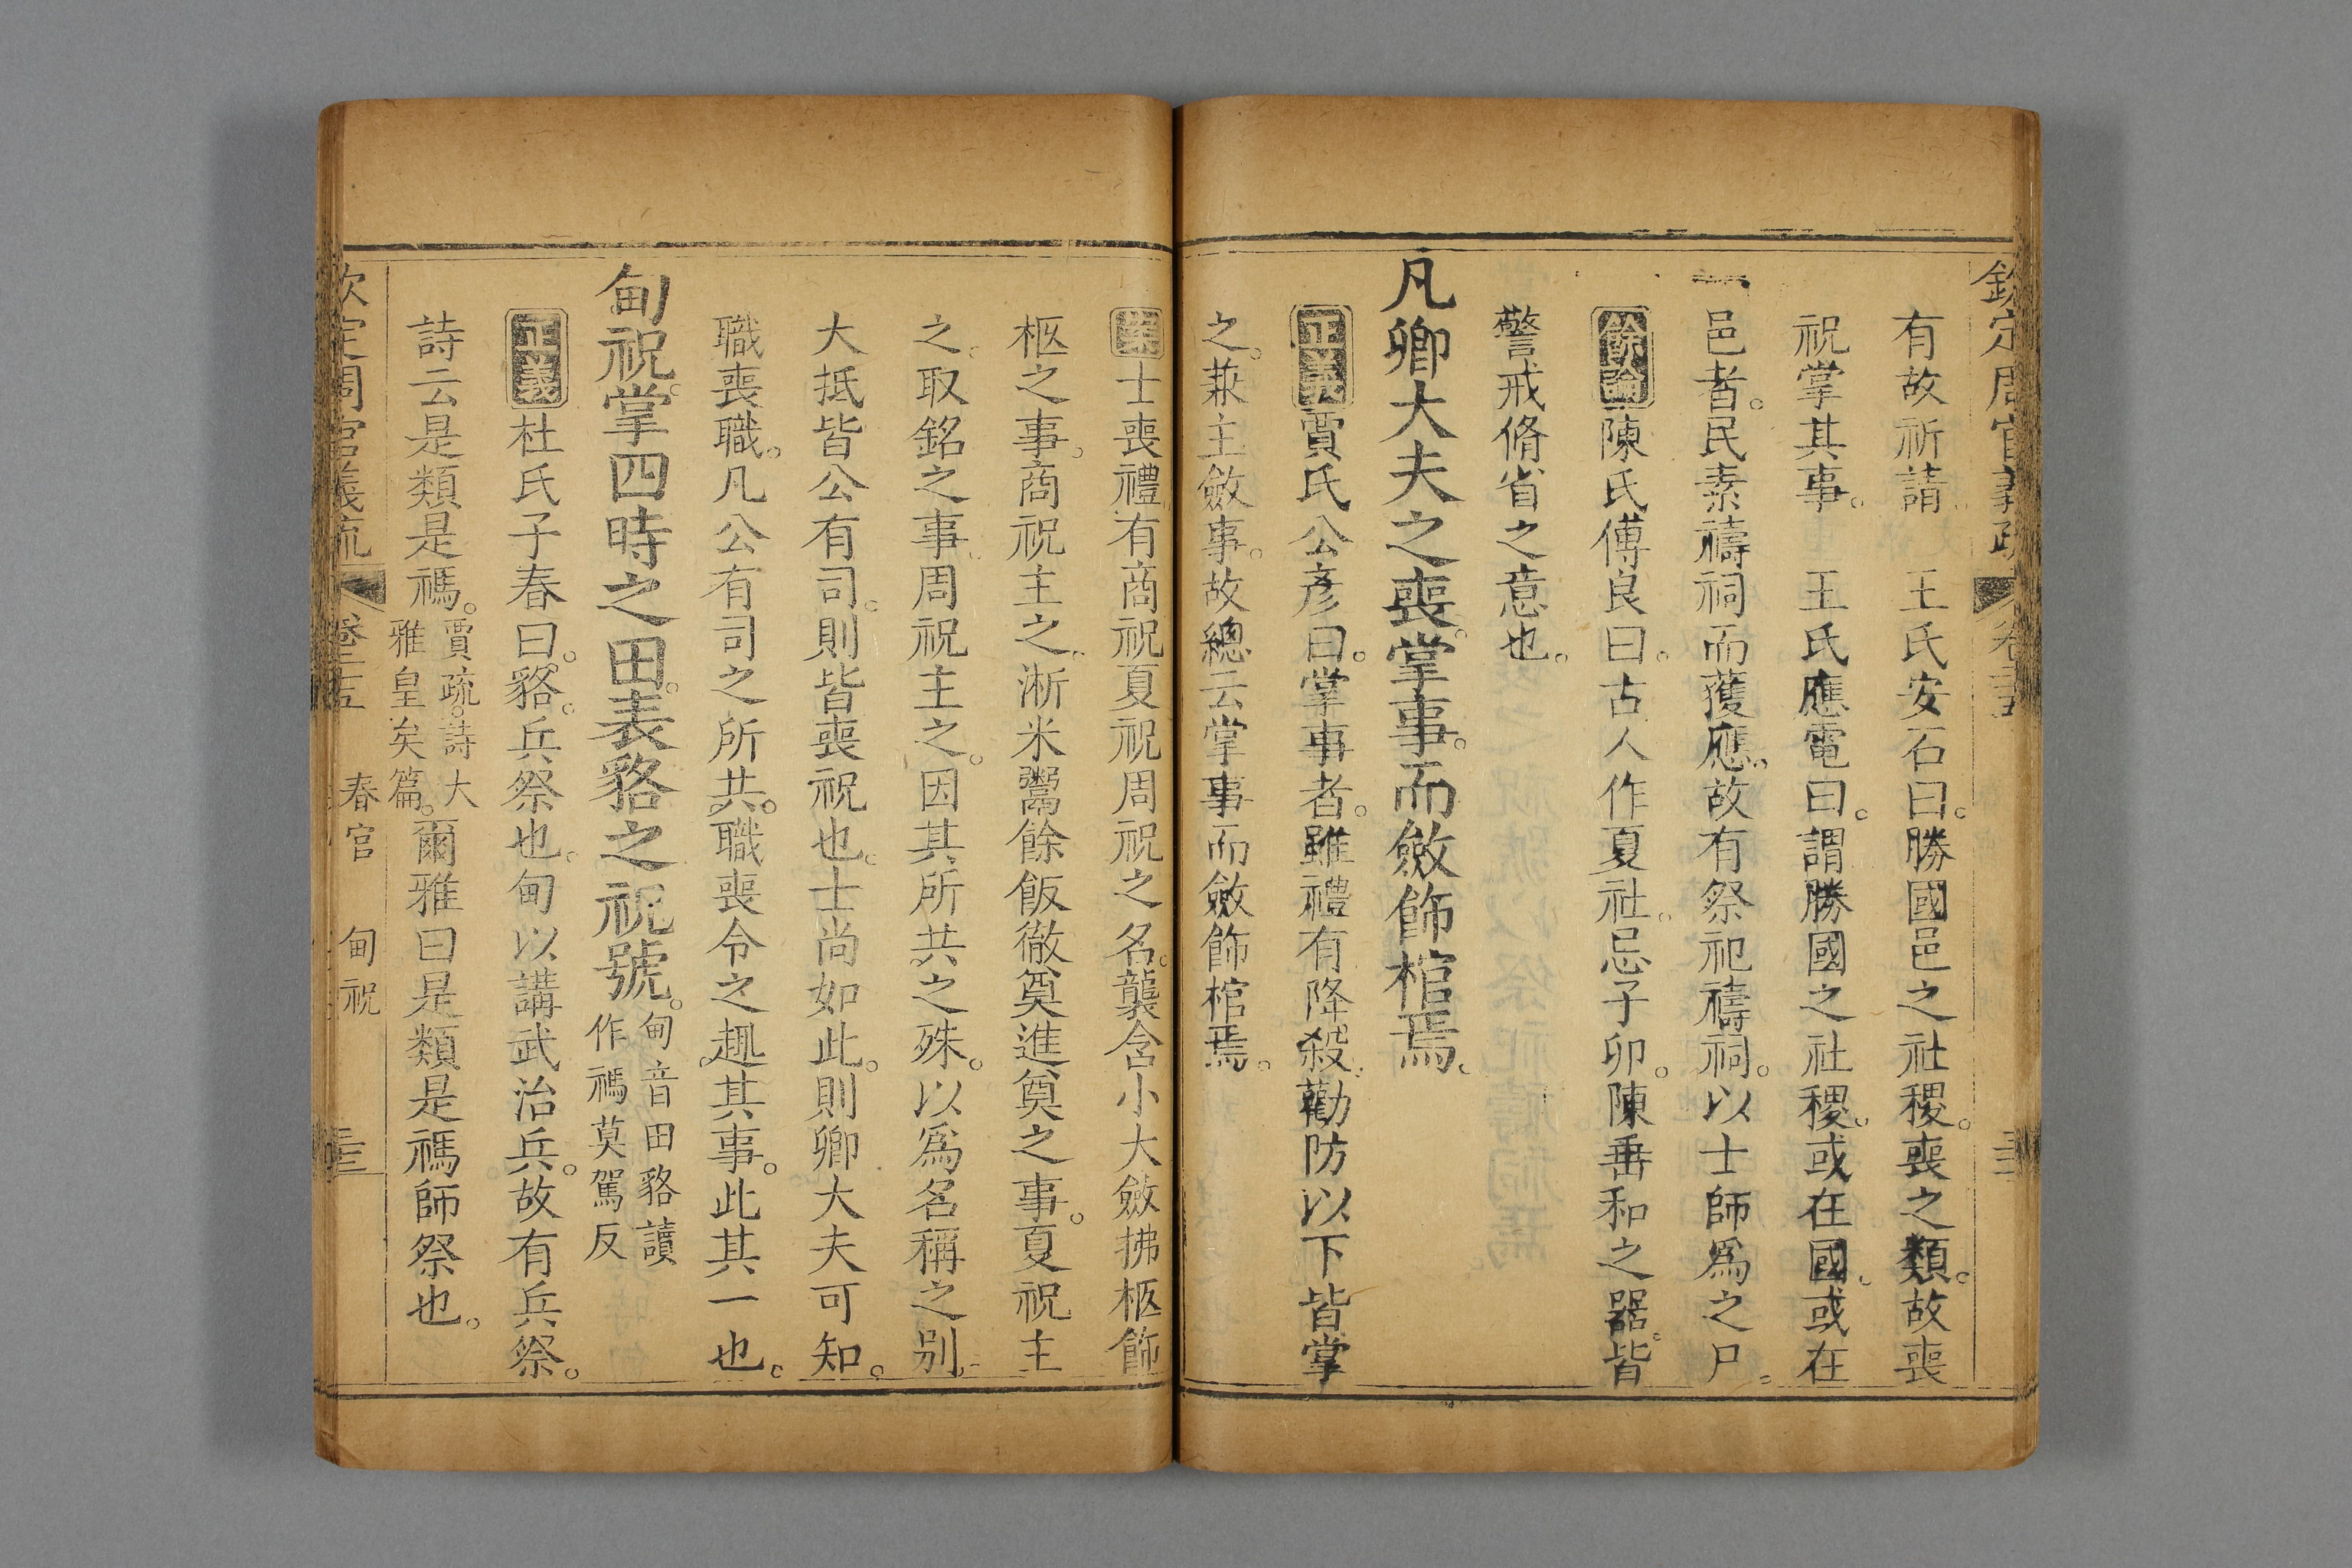 欽定周官義疏 卷二十五
有故祈請。王氏安石曰。勝國邑之社稷。喪之類。故喪
祝掌其事。王氏應電曰。謂勝國之社稷。或在國。或在
邑者。民素禱祠而獲應。故有祭祀禱祠。以士師爲之尸。
餘論陳氏傅良曰。古人作夏社。忌子卯。陳垂和之器。皆
警戒脩省之意也。
凡卿大夫之喪。掌事。而斂飾棺焉。
正義賈氏公彥曰。掌事者。雖禮有降殺。勸防以下皆掌
之。兼主斂事。故總云掌事而斂飾棺焉。
案士喪禮。有商祝夏祝周祝之名。襲含小大斂拂柩飾
柩之事。商祝主之。淅米鬻餘飯徹奠進奠之事。夏祝主
之。取銘之事。周祝主之。因其所共之殊。以爲名稱之别。
大抵皆公有司。則皆喪祝也。士尚如此。則卿大夫可知。
職喪職。凡公有司之所共。職喪令之。趣其事。此其一也。
甸祝。掌四時之田。表貉之祝號。甸音田貉讀
作禡莫駕反
正義杜氏子春曰。貉。兵祭也。甸以講武治兵。故有兵祭。
詩云是類是禡。賈疏。詩大
雅皇矣篇。爾雅曰是類是禡師祭也。
欽定周官義疏 卷二十五 春官 甸祝